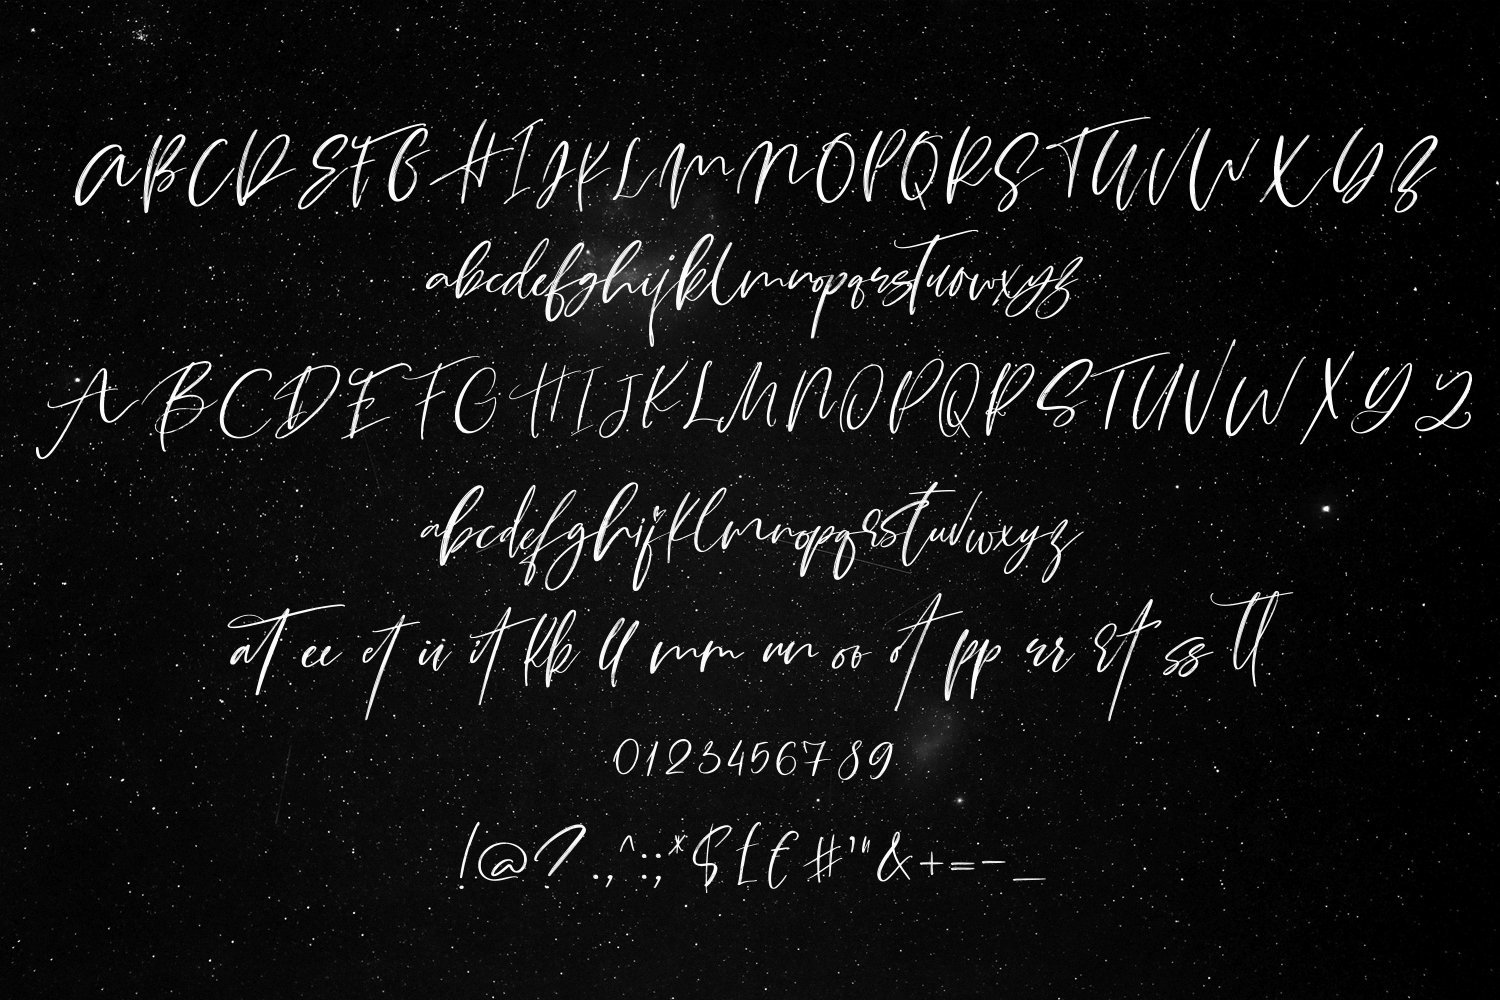 A B C D E F G H I J K L M N O P Q R S T U V W X Y Z
a b c d e f g h i j k l m n o p q r s t u v w x y z
A B C D E F G H I J K L M N O P Q R S T U V W X Y Z
a b c d e f g h i j k l m n o p q r s t u v w x y z
at ee et ii it kk ll mm nn oo ot pp rr rt ss tl
0 1 2 3 4 5 6 7 8 9
! @ ? . , ^ : ; * $ £ € # ' " & + = - _